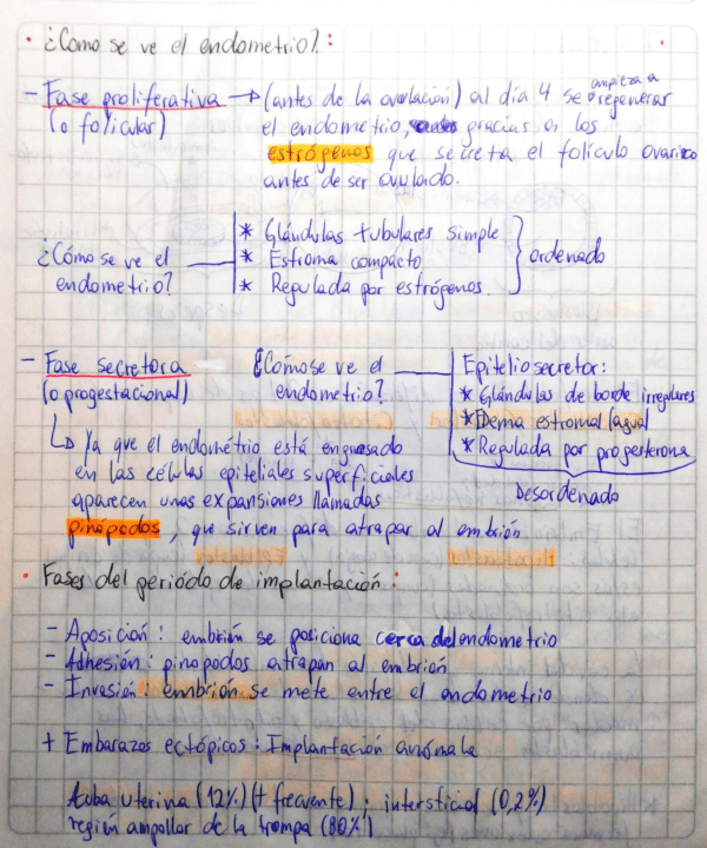 • ¿Como se ve el endometrio?:
- Fase proliferativa → (antes de la ovulación) al día 4 se empieza a regenerar
(o folicular) el endometrio, gracias a los
estrógenos que secreta el folículo ovarico
antes de ser ovulado.
¿Cómo se ve el endometrio?
* Glándulas tubulares simple
* Estroma compacto
* Regulada por estrógenos
ordenado
- Fase secretora
(o progestacional)
¿Cómo se ve el
endometrio?
Epitelio secretor:
* Glándulas de borde irregulares
* Dema estromal (agua)
* Regulada por progesterona
Desordenado
↳ Ya que el endométrio está engrosado
en las células epiteliales superficiales
aparecen unas expansiones llamadas
pinópodos, que sirven para atrapar al embrión
• Fases del periódo de implantación:
- Aposición: embrión se posiciona cerca del endometrio
- Adhesión: pinopodos atrapan al embrión
- Invasión: embrión se mete entre el endometrio
+ Embarazos ectópicos: Implantación anómala
tuba uterina (12%) (+ frecuente); intersticial (0,2%)
región ampollar de la trompa (80%)